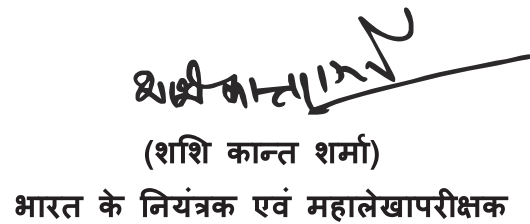 शशि कान्त शर्मा
(शशि कान्त शर्मा)
भारत के नियंत्रक एवं महालेखापरीक्षक